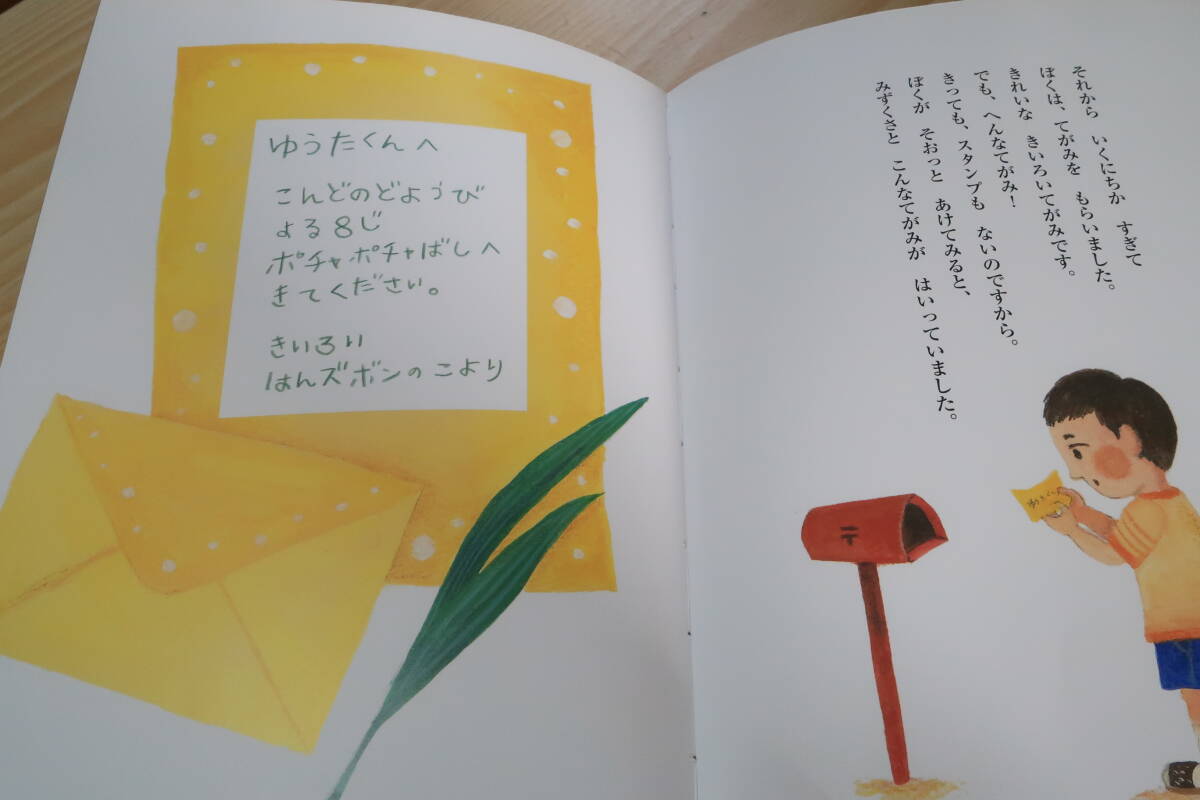 ゆうたくんへ
こんどのどようび
よる8じ
ポチャポチャばしへ
きてください。
きいろい
はんズボンのこより
それから いくにちか すぎて
ぼくは、てがみを もらいました。
きれいな きいろいてがみです。
でも、へんなてがみ!
きっても、スタンプも ないのですから。
ぼくが そおっと あけてみると、
みずくさと こんなてがみが はいっていました。
〒
ゆうたくんへ